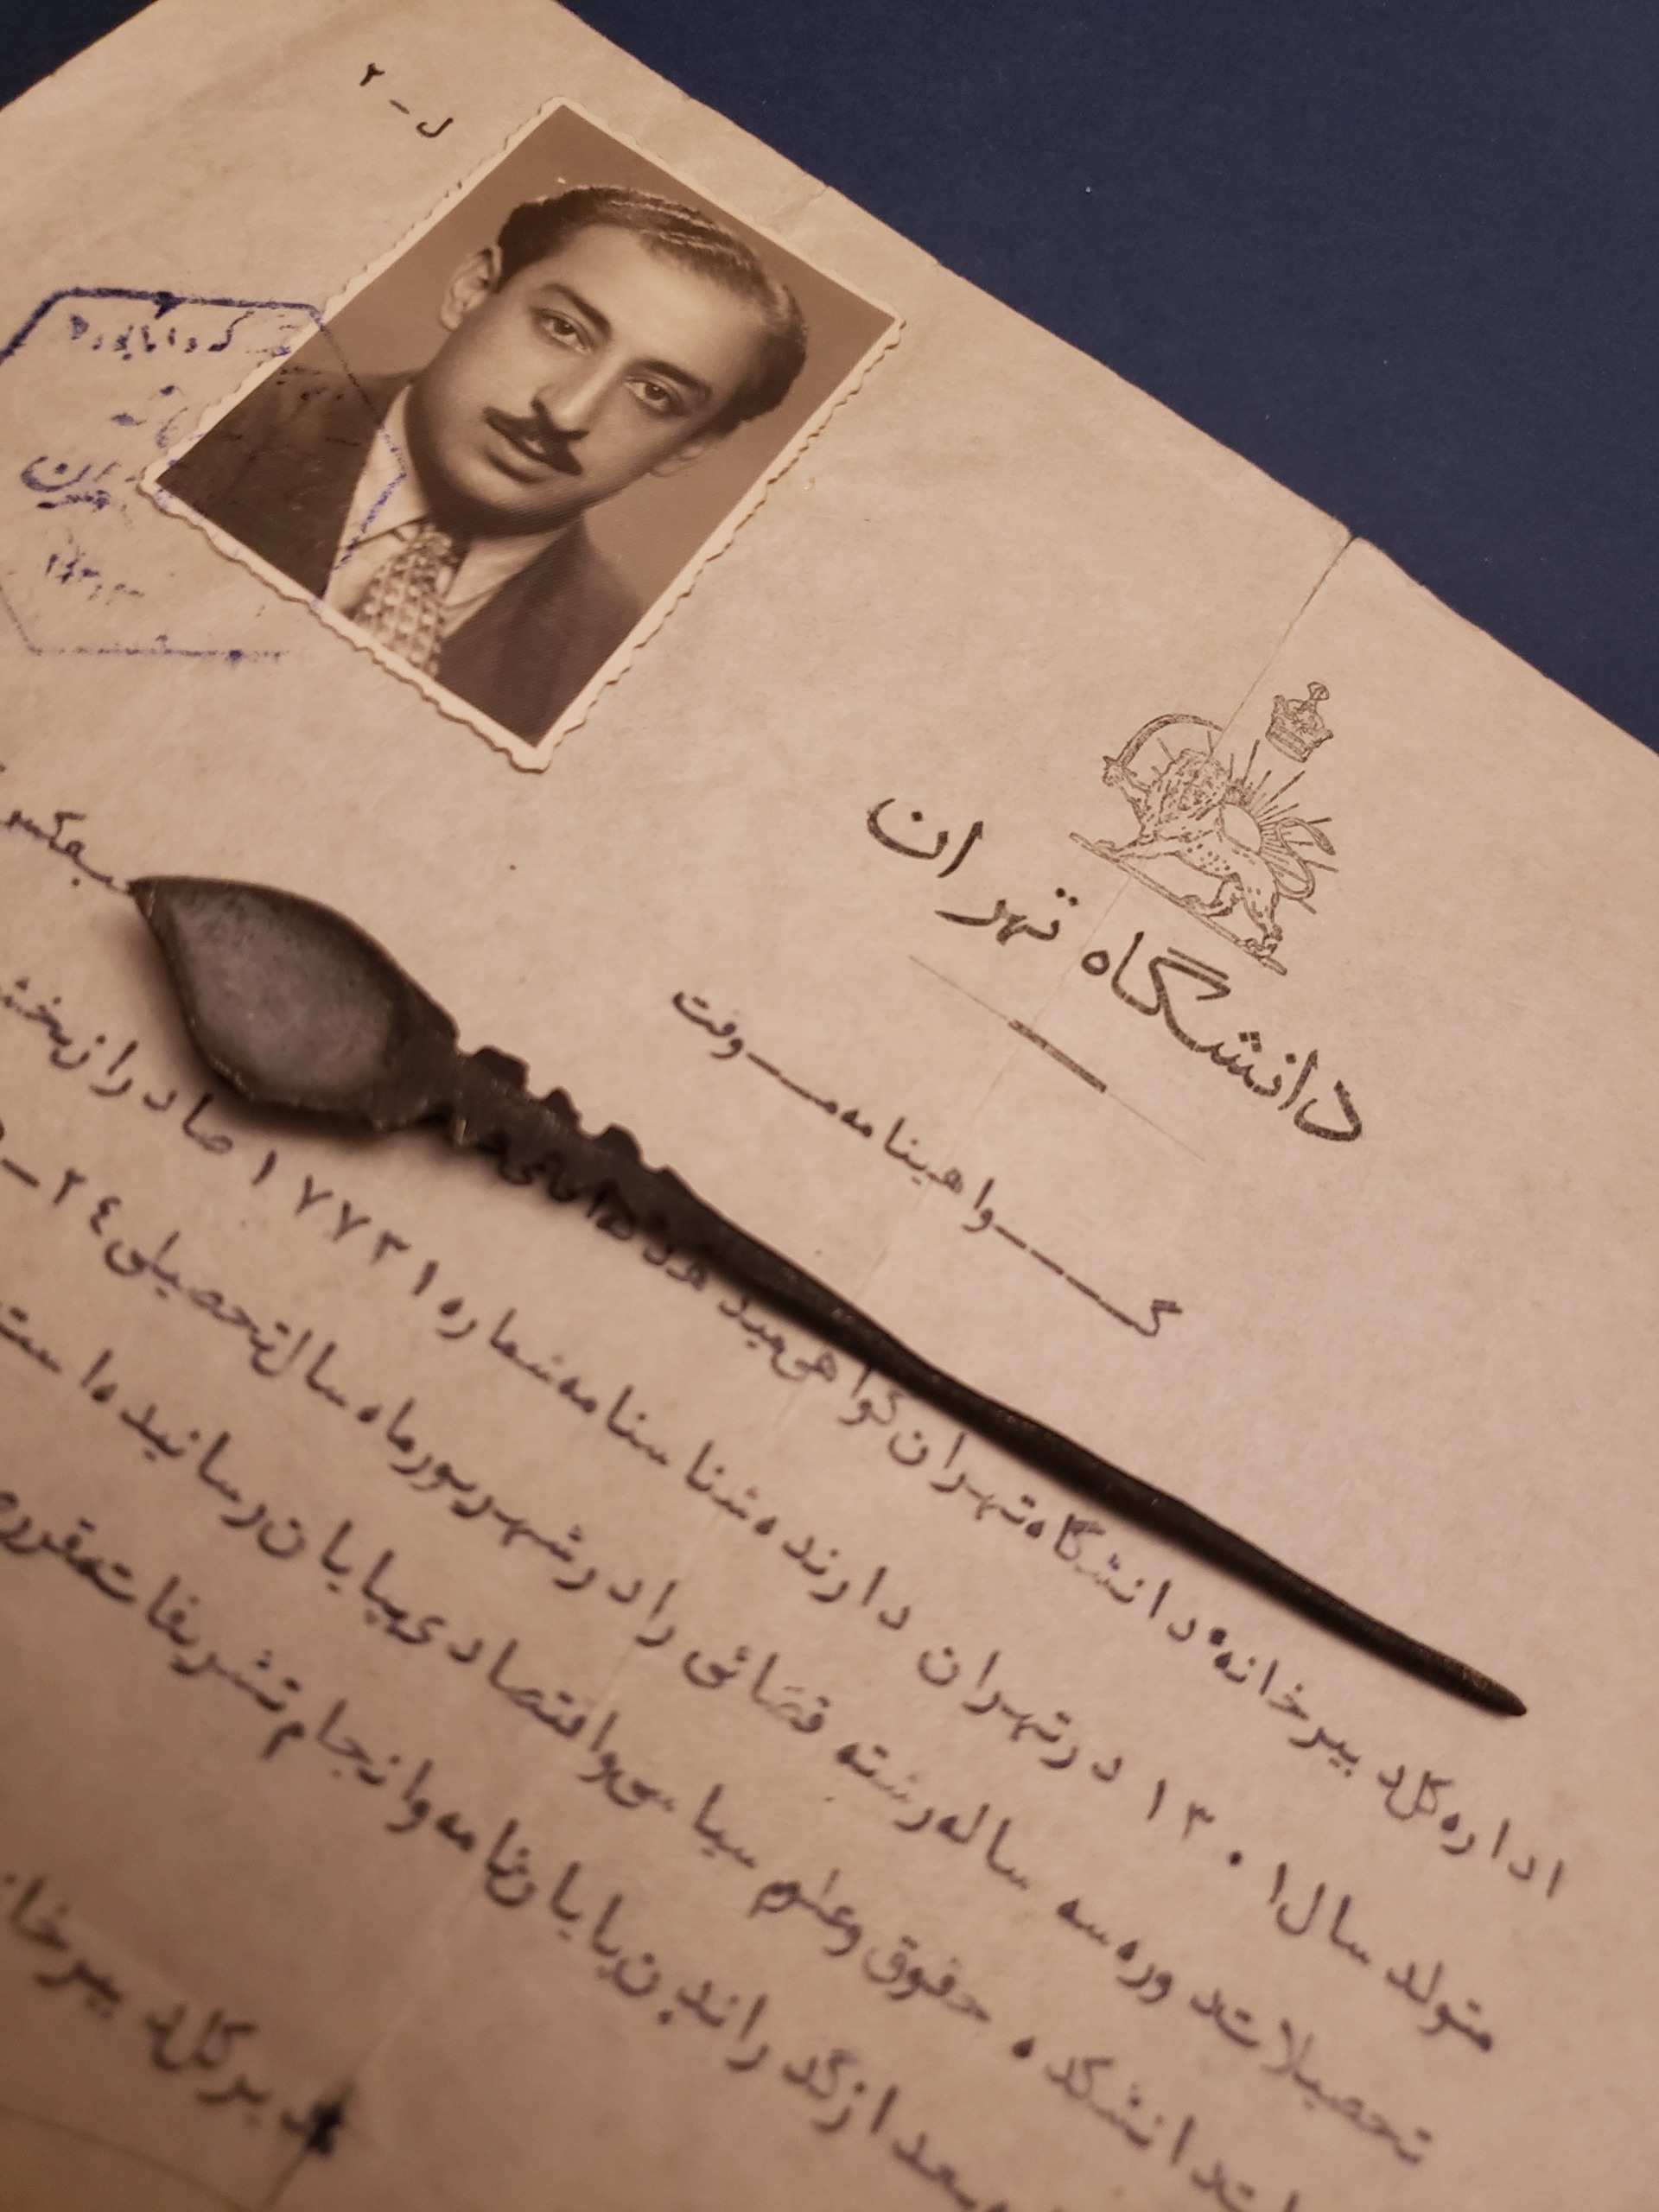 ل - ۲
دانشگاه تهران
گواهینامه موقت
اداره کل دبیرخانه دانشگاه تهران گواهی میدهد که آقای
متولد سال ۱۳۰۱ در تهران دارنده شناسنامه شماره ۱۷۷۳۱ صادر از بخش
تحصیلات دوره سه ساله رشته قضائی را در شهریور ماه سال تحصیلی ۲۴ -
دانشکده حقوق و علوم سیاسی و اقتصادی بپایان رسانیده است
بعد از گذراندن پایان نامه و انجام تشریفات مقرره
مدیر کل دبیرخانه